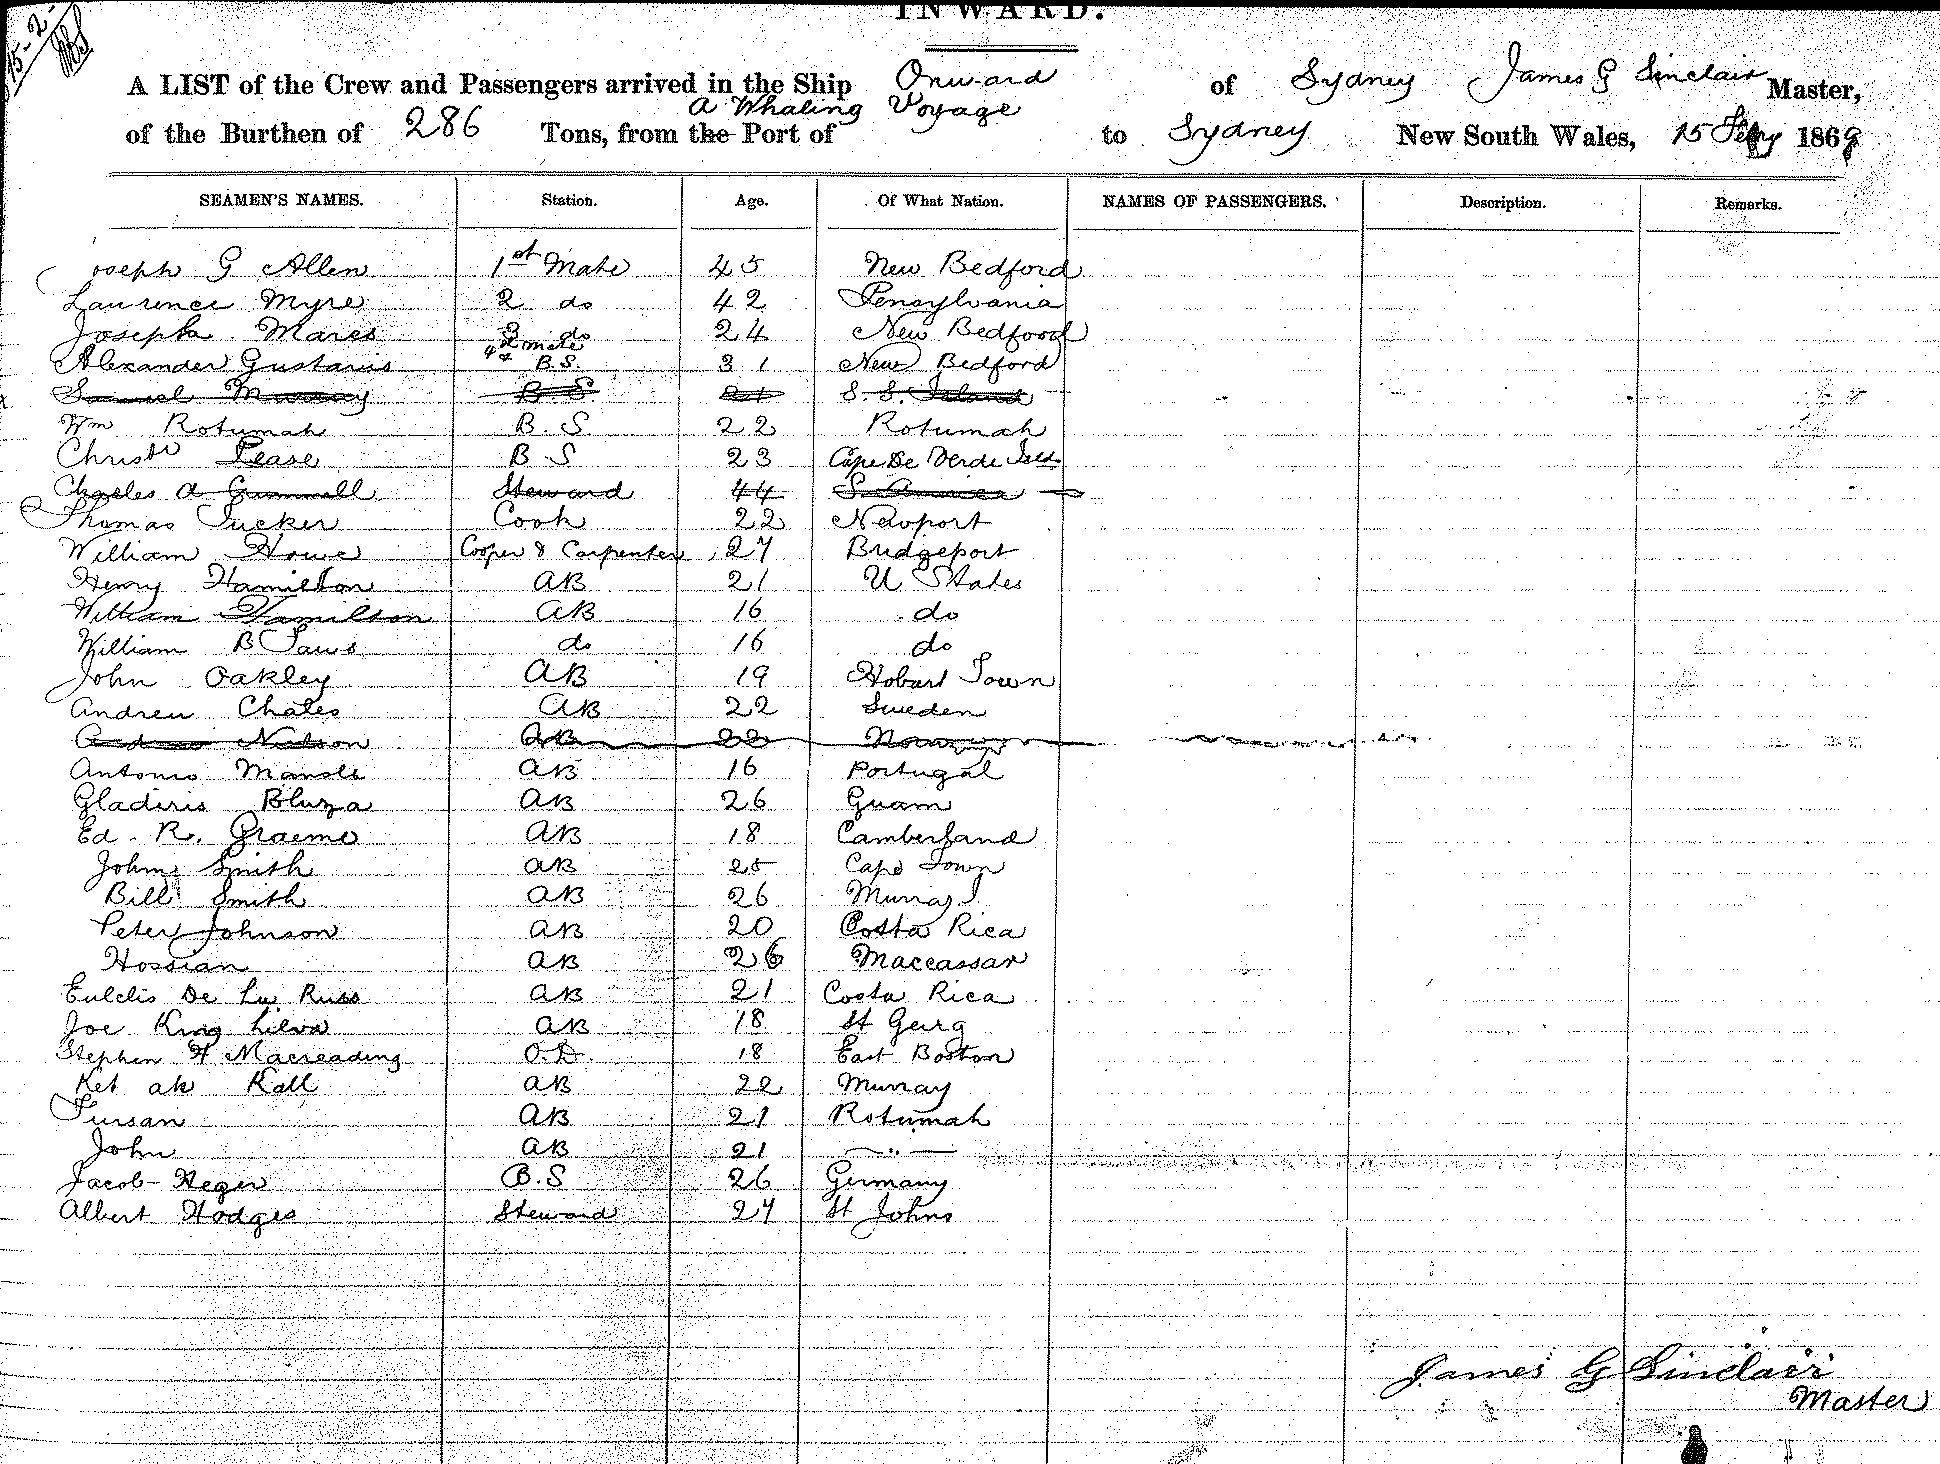 15-2-
INWARD.
A LIST of the Crew and Passengers arrived in the Ship Onward of Sydney James G Sinclair Master,
of the Burthen of 286 Tons, from the Port of A Whaling Voyage to Sydney New South Wales, 15 Feby 1869
SEAMEN'S NAMES. Station. Age. Of What Nation. NAMES OF PASSENGERS. Description. Remarks.
Joseph G Allen 1st Mate 45 New Bedford
Laurence Myre 2 do 42 Pensylvania
Joseph Mares 3 do 24 New Bedford
Alexander Gustavus 4th mate B.S. 31 New Bedford
Samuel B S 21 S. S. Island
Wm Rotumah B. S. 22 Rotumah
Christr Pease B S 23 Cape De Verde Isld
Charles A Grummell Steward 44 S. America
Thomas Tucker Cook 22 Newport
William Howe Cooper & Carpenter 27 Bridgeport
Henry Hamilton AB 21 U States
William Hamilton AB 16 do
William B Paws do 16 do
John Oakley AB 19 Hobart Town
Andrew Chales AB 22 Sweden
Andrew Nielson AB 22 Norway
Antonio Manole AB 16 Portugal
Gladiris Bluza AB 26 Guam
Ed. R. Graeme AB 18 Camberland
John Smith AB 25 Cape Town
Bill Smith AB 26 Murray I
Peter Johnson AB 20 Costa Rica
Hossian AB 26 Maccassar
Euldis De La Russ AB 21 Costa Rica
Joe King Lilva AB 18 St Georg
Stephen H Macreading O.D. 18 East Boston
Ket ah Kall AB 22 Murray
Tursan AB 21 Rotumah
John AB 21 — " —
Jacob Heger B.S 26 Germany
Albert Hodges Steward 27 St Johns
James G Sinclair
Master